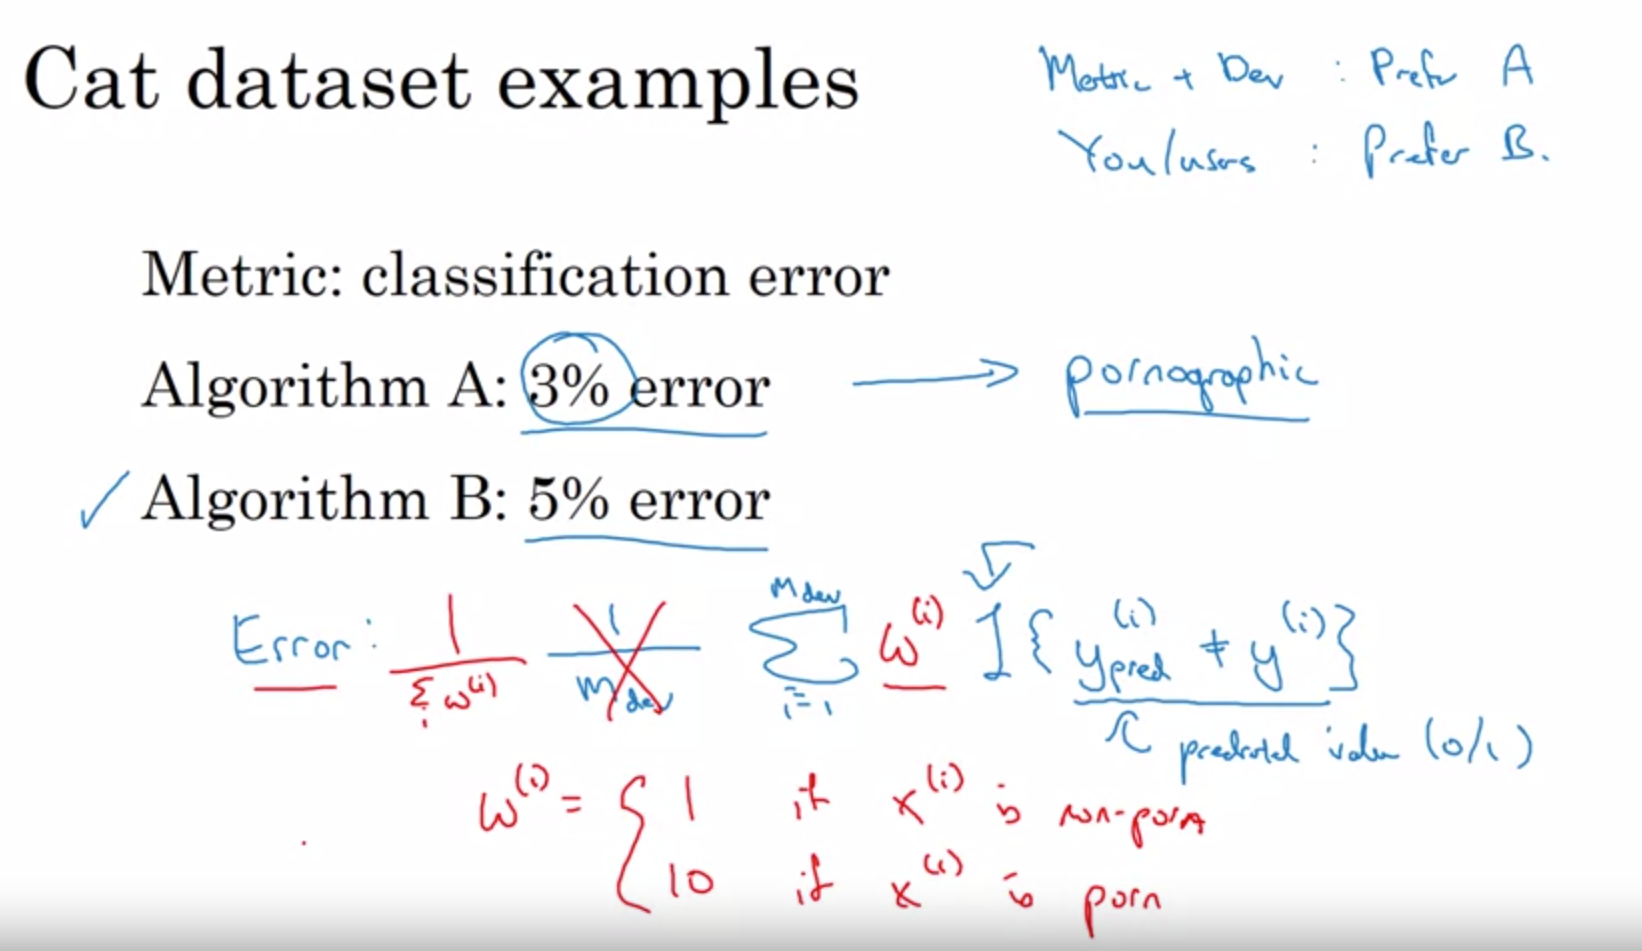 Cat dataset examples
Metric + Dev : Prefer A
You/users : Prefer B.
Metric: classification error
Algorithm A: 3% error → pornographic
✓ Algorithm B: 5% error
Error: 1/Σᵢ w⁽ⁱ⁾ 1/m_dev Σ_{i=1}^{m_dev} w⁽ⁱ⁾ 1{y_pred⁽ⁱ⁾ ≠ y⁽ⁱ⁾}
predicted value (0/1)
w⁽ⁱ⁾ = { 1 if x⁽ⁱ⁾ is non-porn
10 if x⁽ⁱ⁾ is porn